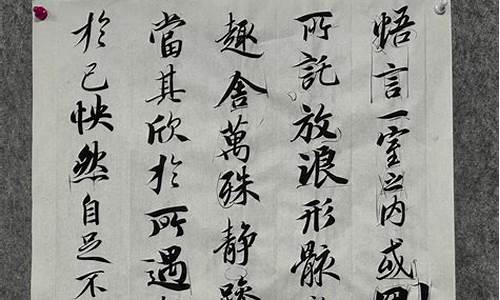 悟言一室之内或因
所託放浪形骸
趣舍萬殊静躁
當其欣於所遇
於己怏然自足不